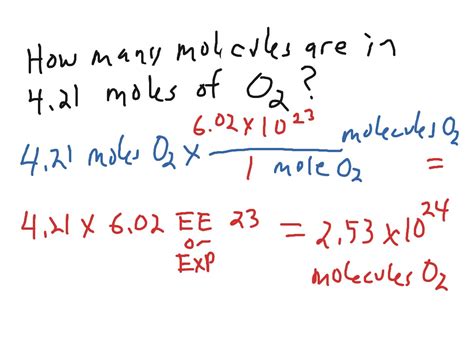 How many molecules are in
4.21 moles of O₂?
4.21 moles O₂ × 6.02 × 10²³ molecules O₂ / 1 mole O₂ =
4.21 × 6.02 EE 23 = 2.53 × 10²⁴
or
EXP
molecules O₂